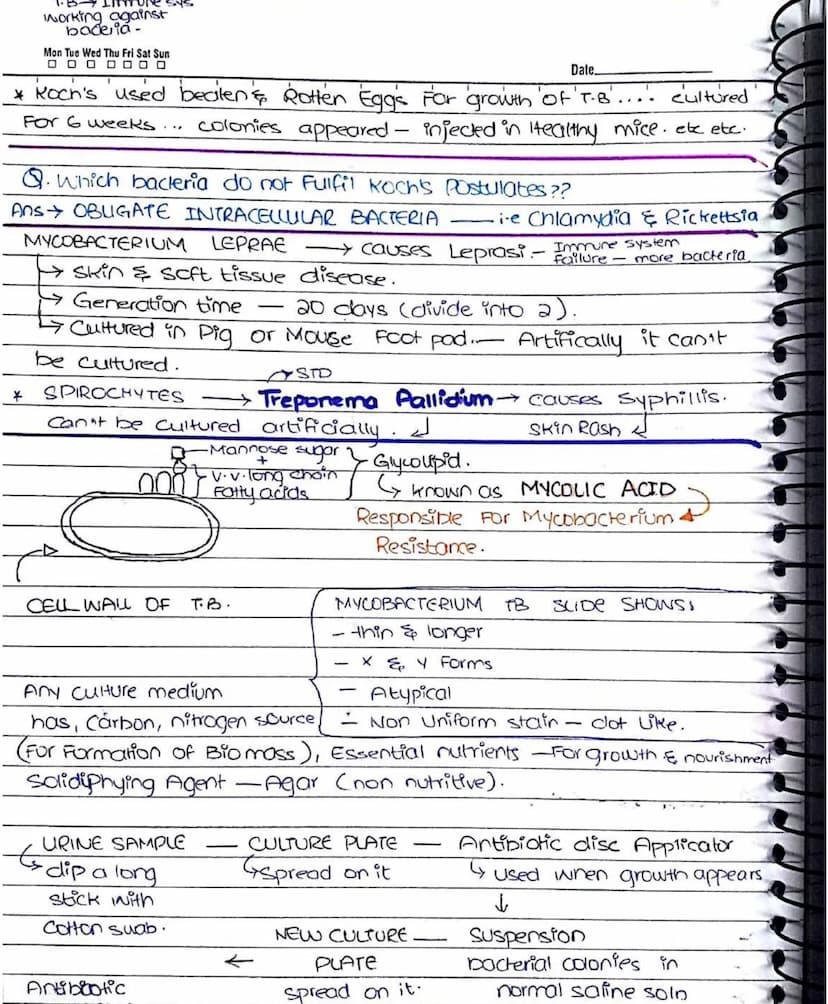 T.B → Immune sys
working against
bacteria -
Mon Tue Wed Thu Fri Sat Sun
Date
* Koch's used beaten & Rotten Eggs For growth of T.B .... cultured
For 6 weeks ... colonies appeared - injected in Healthy mice. etc etc.
Q. Which bacteria do not Fulfil Koch's Postulates??
Ans → OBLIGATE INTRACELLULAR BACTERIA — i.e Chlamydia & Rickettsia
MYCOBACTERIUM LEPRAE → causes Leprosi. - Immune system
Failure - more bacteria
→ Skin & Soft tissue disease.
→ Generation time - 20 days (divide into 2).
→ Cultured in Pig or Mouse Foot pad. - Artifically it can't
be cultured.
→ STD
* SPIROCHYTES → Treponema Pallidium → causes Syphillis.
Can't be cultured artificially.
Skin Rash
Mannose sugar
+
V.v.long chain
Fatty acids
Glycolipid.
↳ known as MYCOLIC ACID
Responsible For Mycobacterium
Resistance.
CELL WALL OF T.B.
MYCOBACTERIUM TB SLIDE SHOWS:
- thin & longer
- x & y Forms
- Atypical
- Non Uniform stain - dot like.
Any culture medium
has, carbon, nitrogen source
(For Formation of Biomass), Essential nutrients - For growth & nourishment
Solidiphying Agent - Agar (non nutritive).
URINE SAMPLE — CULTURE PLATE — Antibiotic disc Applicator
↳ dip a long ↳ spread on it ↳ used when growth appears
stick with ↓
Cotton swab. NEW CULTURE — Suspension
← PLATE bacterial colonies in
Antibiotic spread on it. normal saline soln